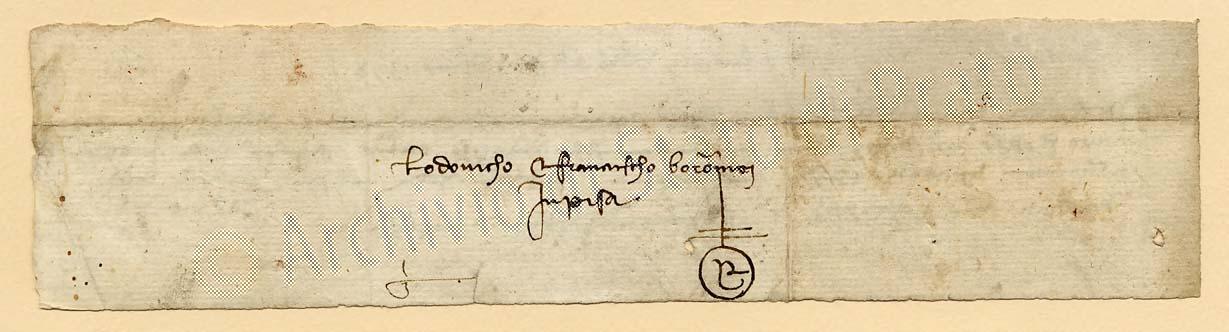 Lodovicho e francischo borōmei
In pisa
© Archivio di Stato di Prato